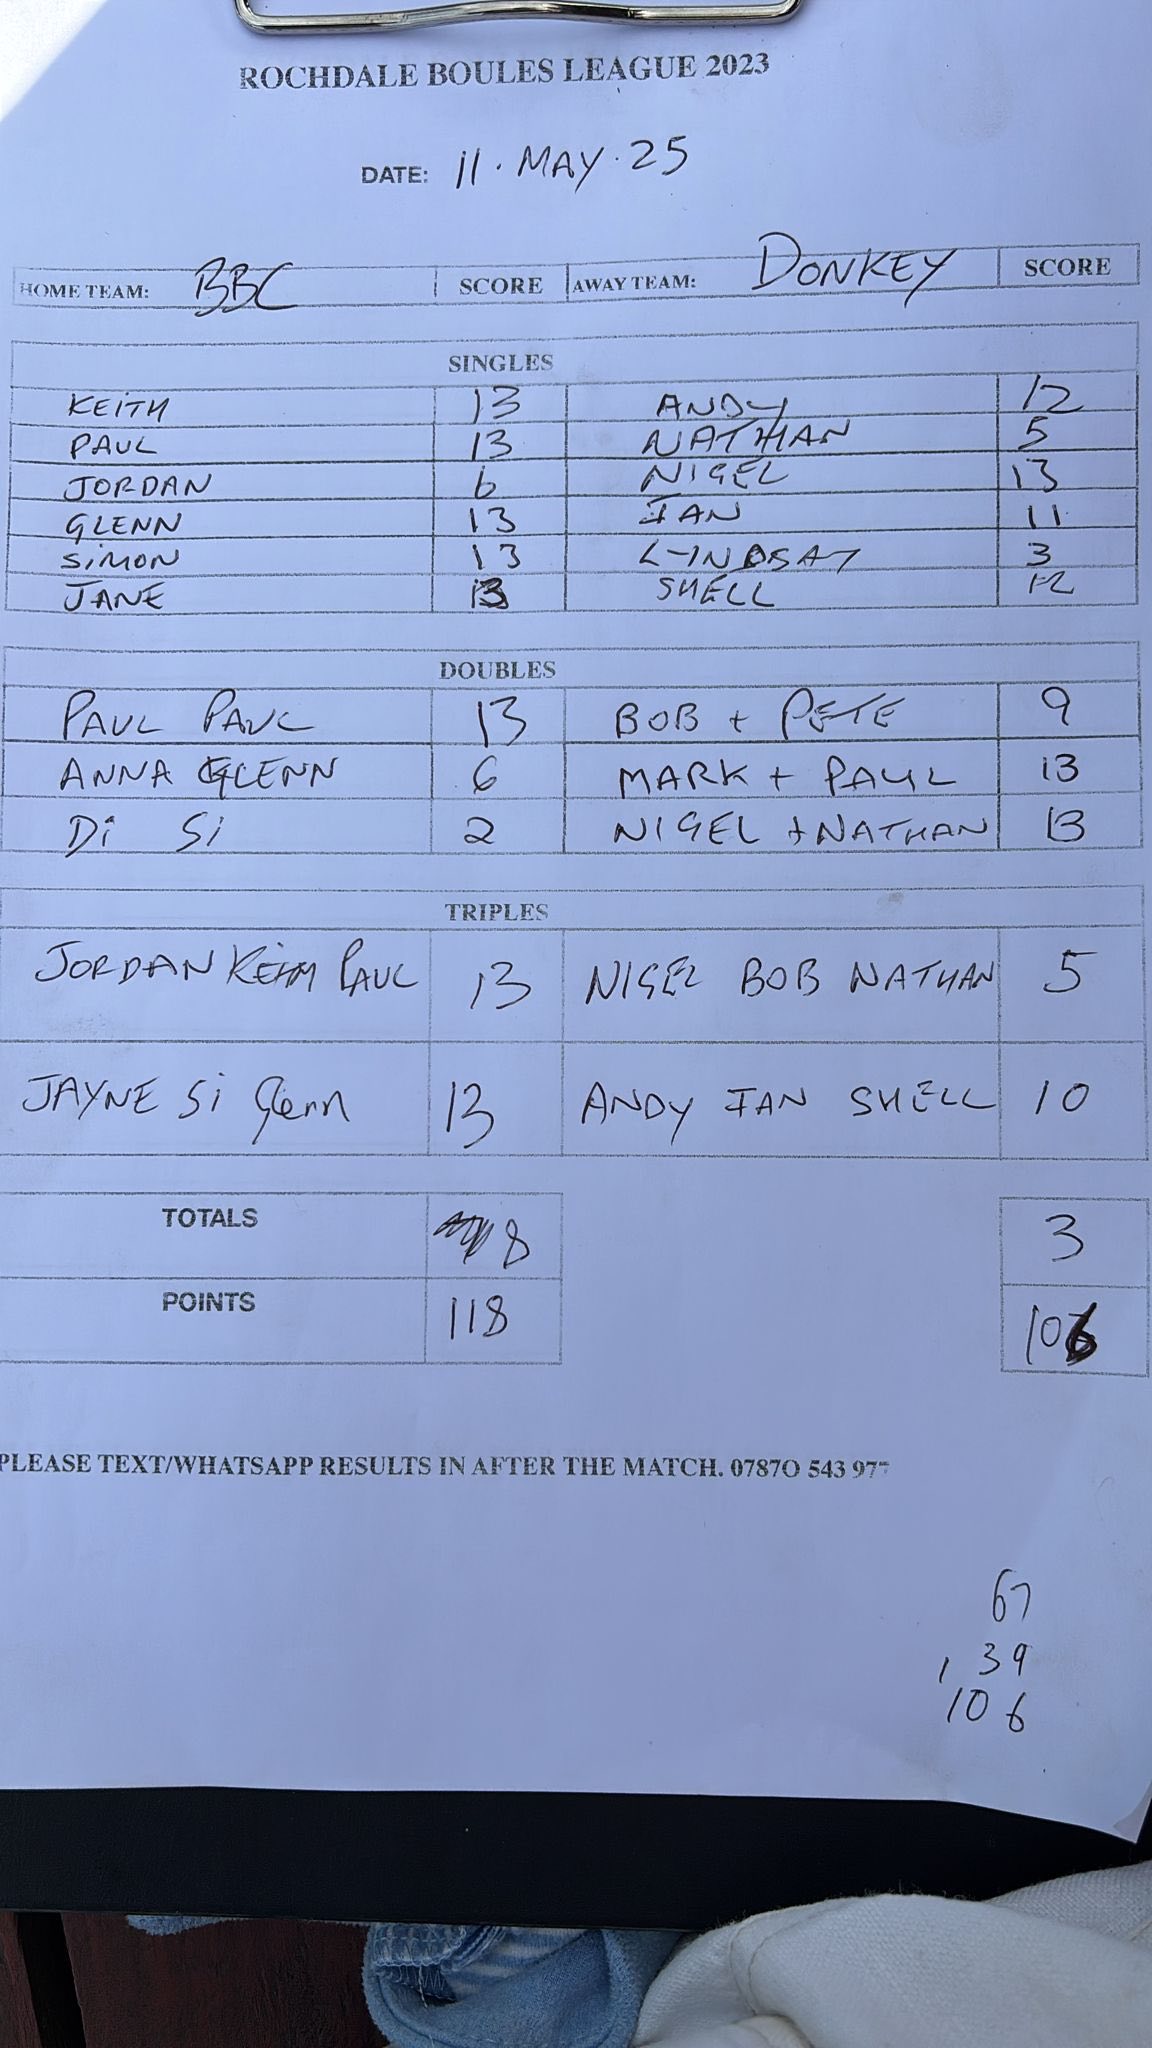 ROCHDALE BOULES LEAGUE 2023
DATE: 11 . MAY . 25
HOME TEAM: BBC SCORE AWAY TEAM: DONKEY SCORE
SINGLES
KEITH 13 ANDY 12
PAUL 13 NATHAN 5
JORDAN 6 NIGEL 13
GLENN 13 IAN 11
SIMON 13 LYNDSAY 3
JANE 13 SHELL 12
DOUBLES
PAUL PAUL 13 BOB + PETE 9
ANNA GLENN 6 MARK + PAUL 13
Di Si 2 NIGEL + NATHAN 13
TRIPLES
JORDAN KEITH PAUL 13 NIGEL BOB NATHAN 5
JAYNE Si Glenn 13 ANDY IAN SHELL 10
TOTALS 8 3
POINTS 118 106
PLEASE TEXT/WHATSAPP RESULTS IN AFTER THE MATCH. 0787O 543 977
67
39
106